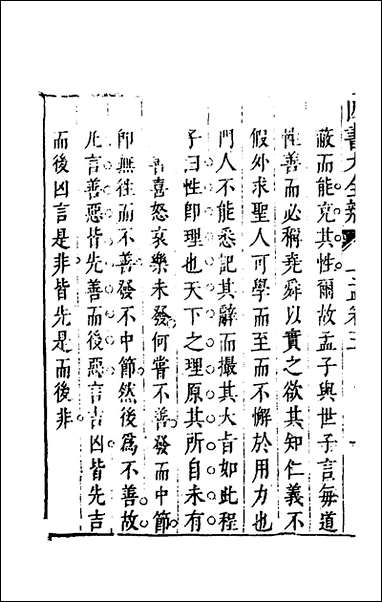 四書大全辨
蔽而能充其性爾故孟子與世子言每道
性善而必稱堯舜以實之欲其知仁義不
假外求聖人可學而至而不懈於用力也
門人不能悉記其辭而撮其大旨如此程
子曰性卽理也天下之理原其所自未有
不善喜怒哀樂未發何嘗不善發而中節
卽無往而不善發不中節然後爲不善故
凡言善惡皆先善而後惡言吉凶皆先吉
而後凶言是非皆先是而後非